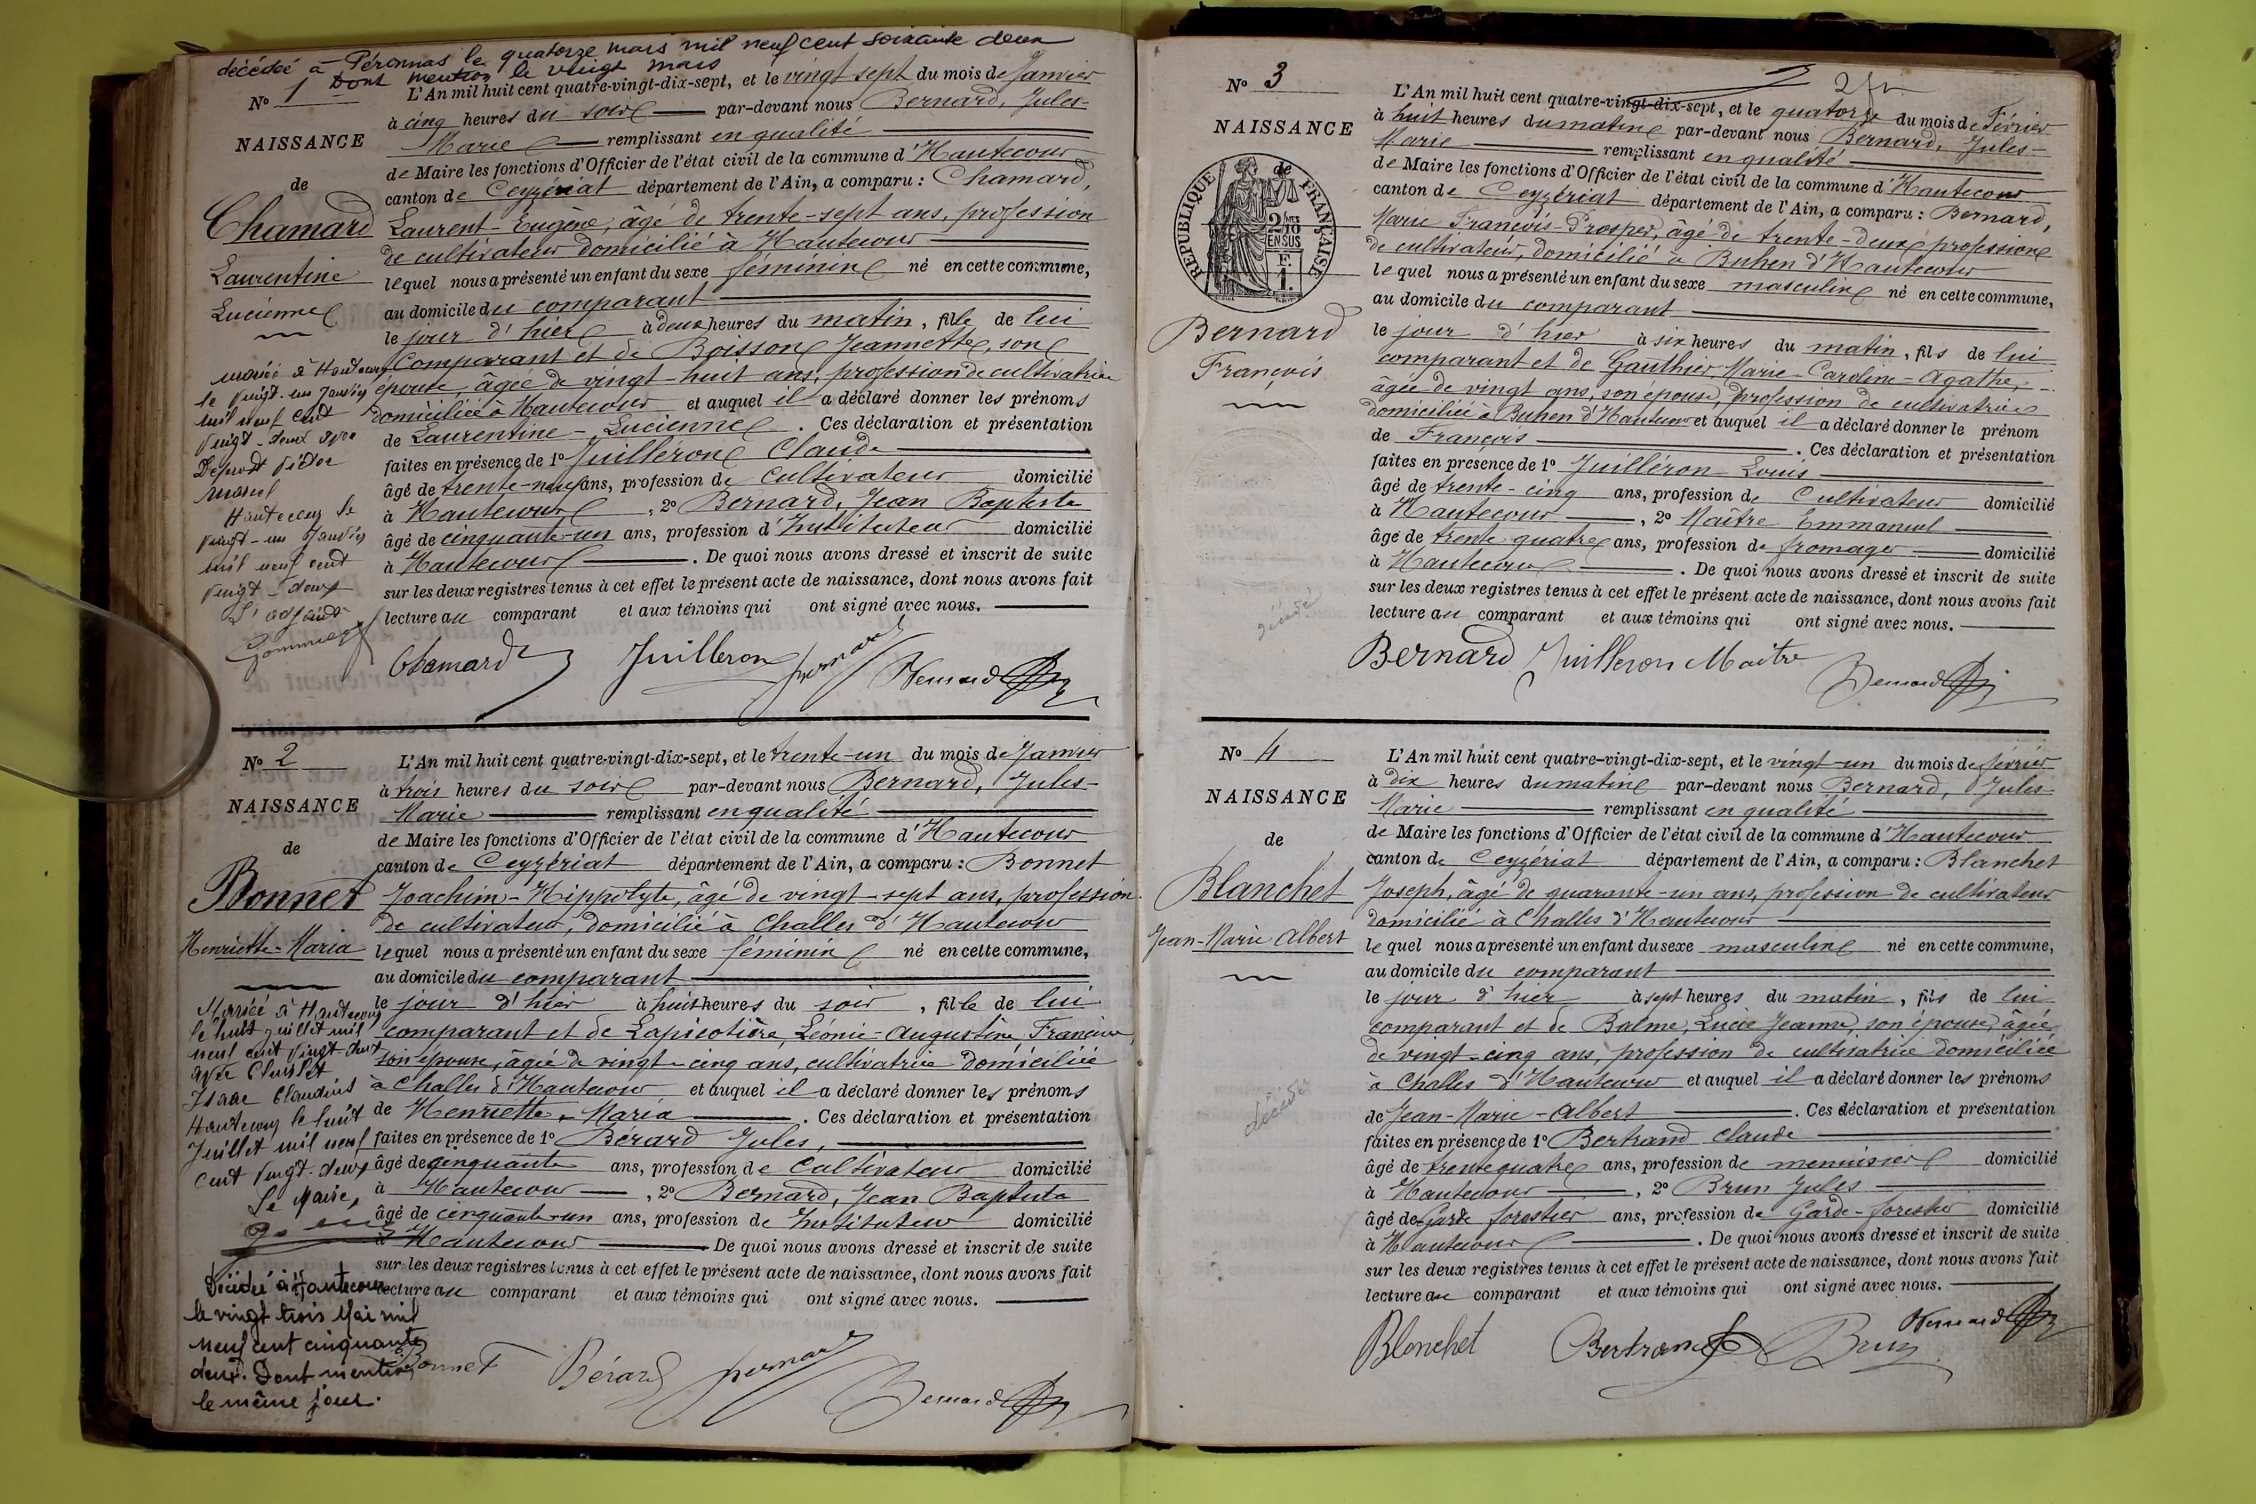 décédée à Péronnas le quatorze mars mil neuf cent soixante deux
Dont mention le vingt mars
No 1
NAISSANCE
de
Chamard
Laurentine
Lucienne
L'An mil huit cent quatre-vingt-dix-sept, et le vingt sept du mois de Janvier
à cinq heures du soir par-devant nous Bernard, Jules-
Marie remplissant en qualité
de Maire les fonctions d'Officier de l'état civil de la commune d'Hautecour
canton de Ceyzériat département de l'Ain, a comparu : Chamard,
Laurent-Eugène, âgé de trente-sept ans, profession
de cultivateur domicilié à Hautecour
lequel nous a présenté un enfant du sexe féminin né en cette commune,
au domicile du comparant
le jour d'hier à deux heures du matin, fille de lui
comparant et de Boisson Jeannette, son
épouse, âgée de vingt-huit ans, profession de cultivatrice
domiciliée à Hautecour et auquel il a déclaré donner les prénoms
de Laurentine-Lucienne. Ces déclaration et présentation
faites en présence de 1o Juilléron Claude
âgé de trente-neuf ans, profession de cultivateur domicilié
à Hautecour, 2o Bernard, Jean Baptiste
âgé de cinquante-un ans, profession d'Instituteur domicilié
à Hautecour. De quoi nous avons dressé et inscrit de suite
sur les deux registres tenus à cet effet le présent acte de naissance, dont nous avons fait
lecture au comparant et aux témoins qui ont signé avec nous.
mariée à Hautecour
le vingt-un Janvier
mil neuf cent
vingt-deux avec
Victor
Marcel
Hautecour le
vingt-un Janvier
mil neuf cent
vingt-deux
L'adjoint
Chamard Juilleron Bernard Bernard
No 2
NAISSANCE
de
Bonnet
Henriette-Maria
L'An mil huit cent quatre-vingt-dix-sept, et le trente-un du mois de Janvier
à trois heures du soir par-devant nous Bernard, Jules-
Marie remplissant en qualité
de Maire les fonctions d'Officier de l'état civil de la commune d'Hautecour
canton de Ceyzériat département de l'Ain, a comparu : Bonnet
Joachim-Hippolyte, âgé de vingt-sept ans, profession
de cultivateur, domicilié à Challes d'Hautecour
lequel nous a présenté un enfant du sexe féminin né en cette commune,
au domicile du comparant
le jour d'hier à huit heures du soir, fille de lui
comparant et de Lapicotière, Léonie-Augustine Francine
son épouse, âgée de vingt-cinq ans, cultivatrice domiciliée
à Challes d'Hautecour et auquel il a déclaré donner les prénoms
de Henriette-Maria. Ces déclaration et présentation
faites en présence de 1o Bérard Jules,
âgé de cinquante ans, profession de cultivateur domicilié
à Hautecour, 2o Bernard, Jean Baptiste
âgé de cinquante-un ans, profession de Instituteur domicilié
à Hautecour De quoi nous avons dressé et inscrit de suite
sur les deux registres tenus à cet effet le présent acte de naissance, dont nous avons fait
lecture au comparant et aux témoins qui ont signé avec nous.
Mariée à Hautecour
le huit juillet mil
neuf cent vingt-deux
avec
Isaac Claudius
Hautecour le huit
Juillet mil neuf
cent vingt-deux
Le Maire,
Décédée à Hautecour
le vingt trois Mai mil
neuf cent cinquante
deux. Dont mention
le même jour.
Bonnet Bérard Bernard Bernard
No 3
NAISSANCE
de
REPUBLIQUE FRANÇAISE
2/10
EN SUS
F.
1.
Bernard
François
L'An mil huit cent quatre-vingt-dix-sept, et le quatorze du mois de Février
à huit heures du matin par-devant nous Bernard, Jules-
Marie remplissant en qualité
de Maire les fonctions d'Officier de l'état civil de la commune d'Hautecour
canton de Ceyzériat département de l'Ain, a comparu : Bernard,
Marie François-Prosper, âgé de trente-deux profession
de cultivateur, domicilié à Buhen d'Hautecour
lequel nous a présenté un enfant du sexe masculin né en cette commune,
au domicile du comparant
le jour d'hier à six heures du matin, fils de lui
comparant et de Gauthier Marie-Caroline-Agathe,
âgée de vingt ans, son épouse, profession de cultivatrice
domiciliée à Buhen d'Hautecour et auquel il a déclaré donner le prénom
de François. Ces déclaration et présentation
faites en présence de 1o Juilléron Louis
âgé de trente-cinq ans, profession de Cultivateur domicilié
à Hautecour, 2o Maître Emmanuel
âgé de trente quatre ans, profession de fromager domicilié
à Hautecour. De quoi nous avons dressé et inscrit de suite
sur les deux registres tenus à cet effet le présent acte de naissance, dont nous avons fait
lecture au comparant et aux témoins qui ont signé avec nous.
Bernard Juilleron Maitre Bernard
No 4
NAISSANCE
de
Blanchet
Jean-Marie Albert
décédé
L'An mil huit cent quatre-vingt-dix-sept, et le vingt-un du mois de février
à dix heures du matin par-devant nous Bernard, Jules-
Marie remplissant en qualité
de Maire les fonctions d'Officier de l'état civil de la commune d'Hautecour
canton de Ceyzériat département de l'Ain, a comparu : Blanchet
Joseph, âgé de quarante-un ans, profession de cultivateur
domicilié à Challes d'Hautecour
lequel nous a présenté un enfant du sexe masculin né en cette commune,
au domicile du comparant
le jour d'hier à sept heures du matin, fils de lui
comparant et de Balme, Lucie Jeanne, son épouse, âgée
de vingt-cinq ans, profession de cultivatrice domiciliée
à Challes d'Hautecour et auquel il a déclaré donner les prénoms
de Jean-Marie-Albert. Ces déclaration et présentation
faites en présence de 1o Bertrand Claude
âgé de trente quatre ans, profession de menuisier domicilié
à Hautecour, 2o Brun Jules
âgé de Garde forestier ans, profession de Garde-forestier domicilié
à Hautecour. De quoi nous avons dressé et inscrit de suite
sur les deux registres tenus à cet effet le présent acte de naissance, dont nous avons fait
lecture au comparant et aux témoins qui ont signé avec nous.
Blanchet Bertrand Brun Bernard